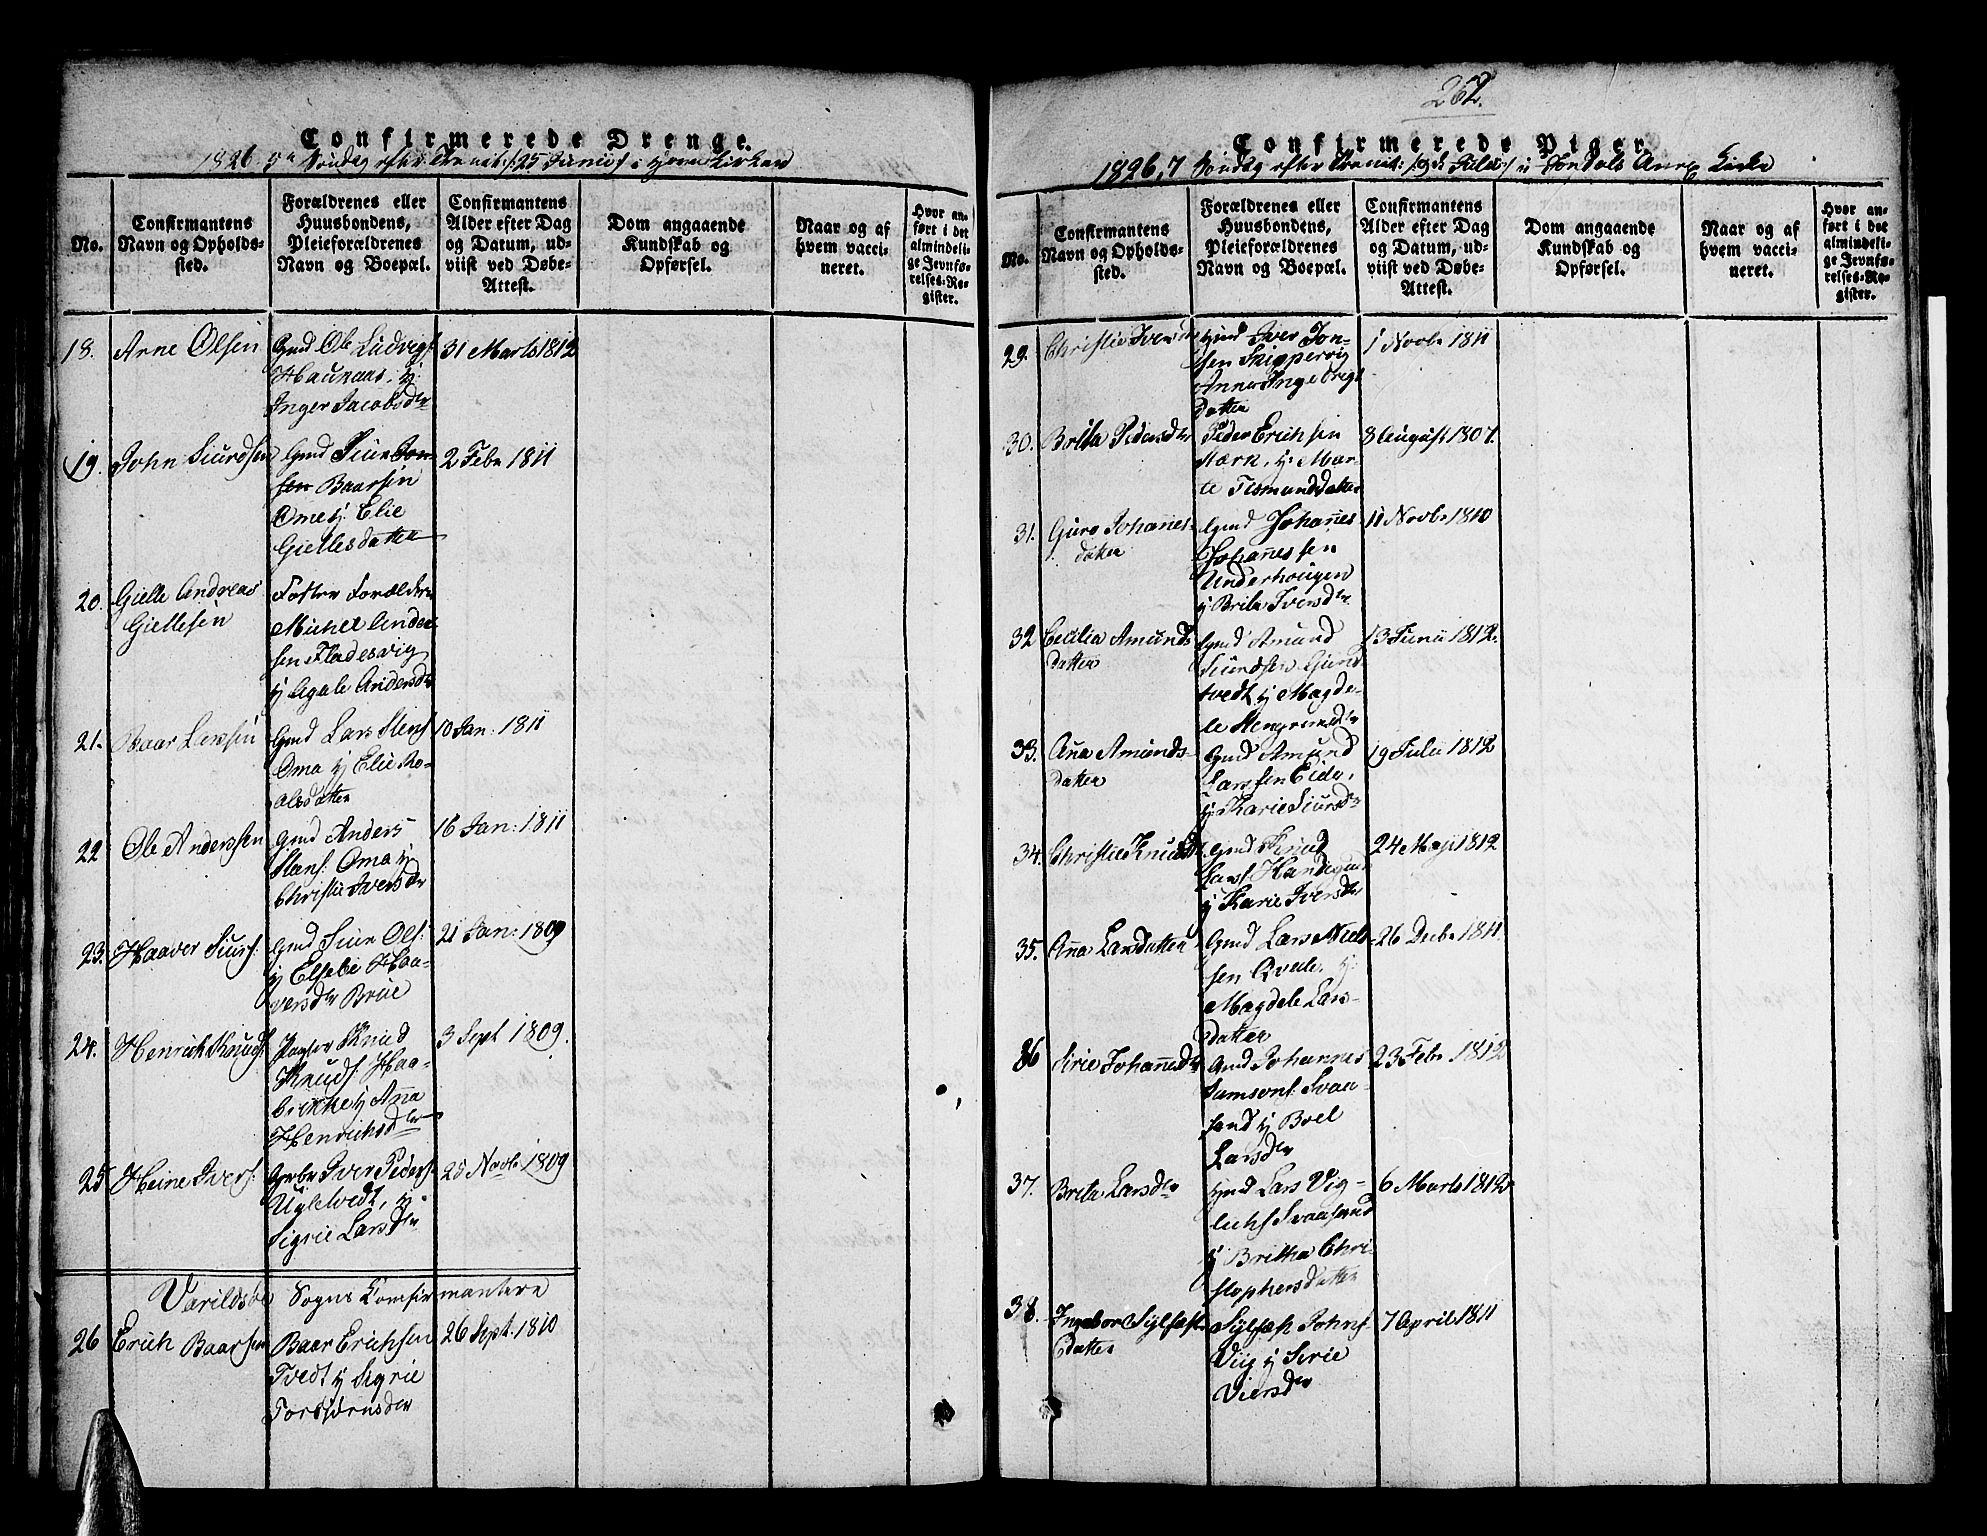 Confirmerede Drenge.
1826. 5te Søndag efter Trinit: /25 Junius/ i
No.
Confirmantens
Navn og Opholds-
sted.
Forældrenes eller
Huusbondens,
Pleieforældrenes
Navn og Boepæl.
Confirmantens
Alder efter Dag
og Datum, ud-
viist ved Døbe-
Attest.
Dom angaaende
Kundskab og
Opførsel.
Naar og af
hvem vacci-
neret.
Hvor an-
ført i det
almindeli-
ge Jevnfø-
relses-Re-
gister.
18. Arne Olsen
Gmd Ole Ludvigs
Haukaas, y
Inger Jacobsdr
31 Marts 1812
19. John Siurdsen
Gmd Siur Jon-
sen Baarsen
Ome y Elie
Giellesdatter
2 Febr 1811
20. Gielle Andreas
Giellesen
Foster Forældre
Michel Ander
sen Fladesvig
y Agale Andersdr
21. Baar Larsen
Gmd Lars Stens
Oma y Elie Ro-
alsdatter
10 Jan: 1811
22 Ole Anderssen
Gmd Anders
Hans: Oma y
Christie Iversdr
16 Jan: 1811
23. Haaver Siurs:
Gmd Siur Ols:
y Elsebe Haa-
versdr Brue
21 Jan: 1809
24. Henrich Knuds:
Pagter Knud
Knuds: Haa-
brekke y Aña
Henrichsdr
3 Sept 1809.
25 Heine Ivers:
Iver Peders:
Ugletvedt, y
Sigrie Larsdr
25 Novbr 1809
Varildsøe Sogns Comfirmantere
26 Erich Baarsen
Baar Erichsen
Tvedt y Sigrie
Torbjørnsdr
26 Sept. 1810
262.
Confirmerede Piger.
1826, 7 Søndag efter Trinit: /9de Julii/ i Jondals Annex Kirke
No.
Confirmantens
Navn og Opholds-
sted.
Forældrenes eller
Huusbondens,
Pleieforældrenes
Navn og Boepæl.
Confirmantens
Alder efter Dag
og Datum, ud-
viist ved Døbe-
Attest.
Dom angaaende
Kundskab og
Opførsel.
Naar og af
hvem vacci-
neret.
Hvor an-
ført i det
almindeli-
ge Jevnfø-
relses-Re-
gister.
29. Christie Iversdr
Gmd Iver Jon-
sen Skippervig
Anna Ingebrigt
datter
1 Novbr 1811
30. Brita Pedersdr
Peder Erichsen
Mærk, y Mar-
te Asmundsdatter
8 August 1807.
31. Guro Johañes-
datter
Gmd Johañes
Johañessen
Underhougen
y Brita Iversdr
11 Novbr 1810
32 Cecilia Amunds
datter
Gmd Amund
Siurdsen Giers
tvedt y Magde-
le
13 Junii 1812.
33. Aña Amunds-
datter
Gmd Amund
Larssen Eide,
y Karie Siursdr
19 Julii 1812
34. Christie Knudsdr
Gmd Knud
Lars:
y Karie Iversdr
24 Maji 1812
35. Aña Larsdatter
Gmd Lars Niel-
sen Qvale, y
Magdele Lars-
datter
26 Decbr 1811.
36 Sirie Johañesdr
Gmd Johannes
Samsons: Svaa-
sand y Boel
Larsdr
23 Febr 1812
37. Brita Larsdr
Gmd Lars Vig-
lichs Svaasand
y Britha Chri-
stophersdatter
6 Marts 1812
38. Ingebor Sylfæst
datter
Sylfæst Johns
Viig y Sirie
Viersdr
7 April 1811